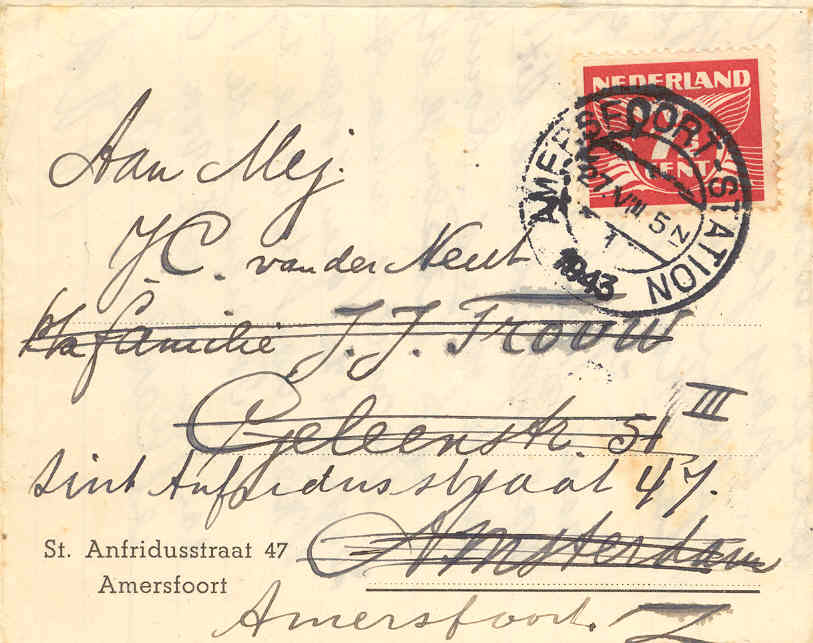 NEDERLAND
7½
CENT
AMERSFOORT-STATION
27.VIII.5N
1
1943
Aan Mej.
J.C. van der Neut
p/a familie J. J. Trouw
Geleenstr. 51 III
Sint Anfridusstraat 47.
St. Anfridusstraat 47
Amersfoort
Amsterdam Z
Amersfoort.